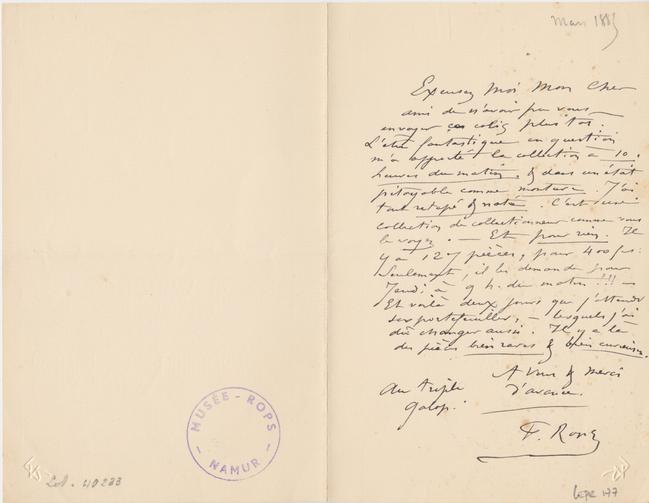 Mars 188
Excusez Moi Mon Cher
ami de n'avoir pu vous
envoyer ces colis plus tôt.
L'être fantastique en question
m'a apporté la collection à 10
heures du matin, & dans un état
pitoyable comme monture. J'ai
tout retapé & noté. C'est une
collection de collectionneur comme vous
le voyez. — Et pour rien. Il
y a 127 pièces, pour 400 frs:
Seulement, il les demande pour
Jeudi à 9 h. du matin !!! —
Et voilà deux jours que j'attends
ses portefeuilles, — lesquels j'ai
dû changer aussi. Il y a là
des pièces bien rares & bien curieuses.
A Vous & merci
d'avance.
au triple
galop.
F. Rops
MUSÉE - ROPS
NAMUR
40233
177